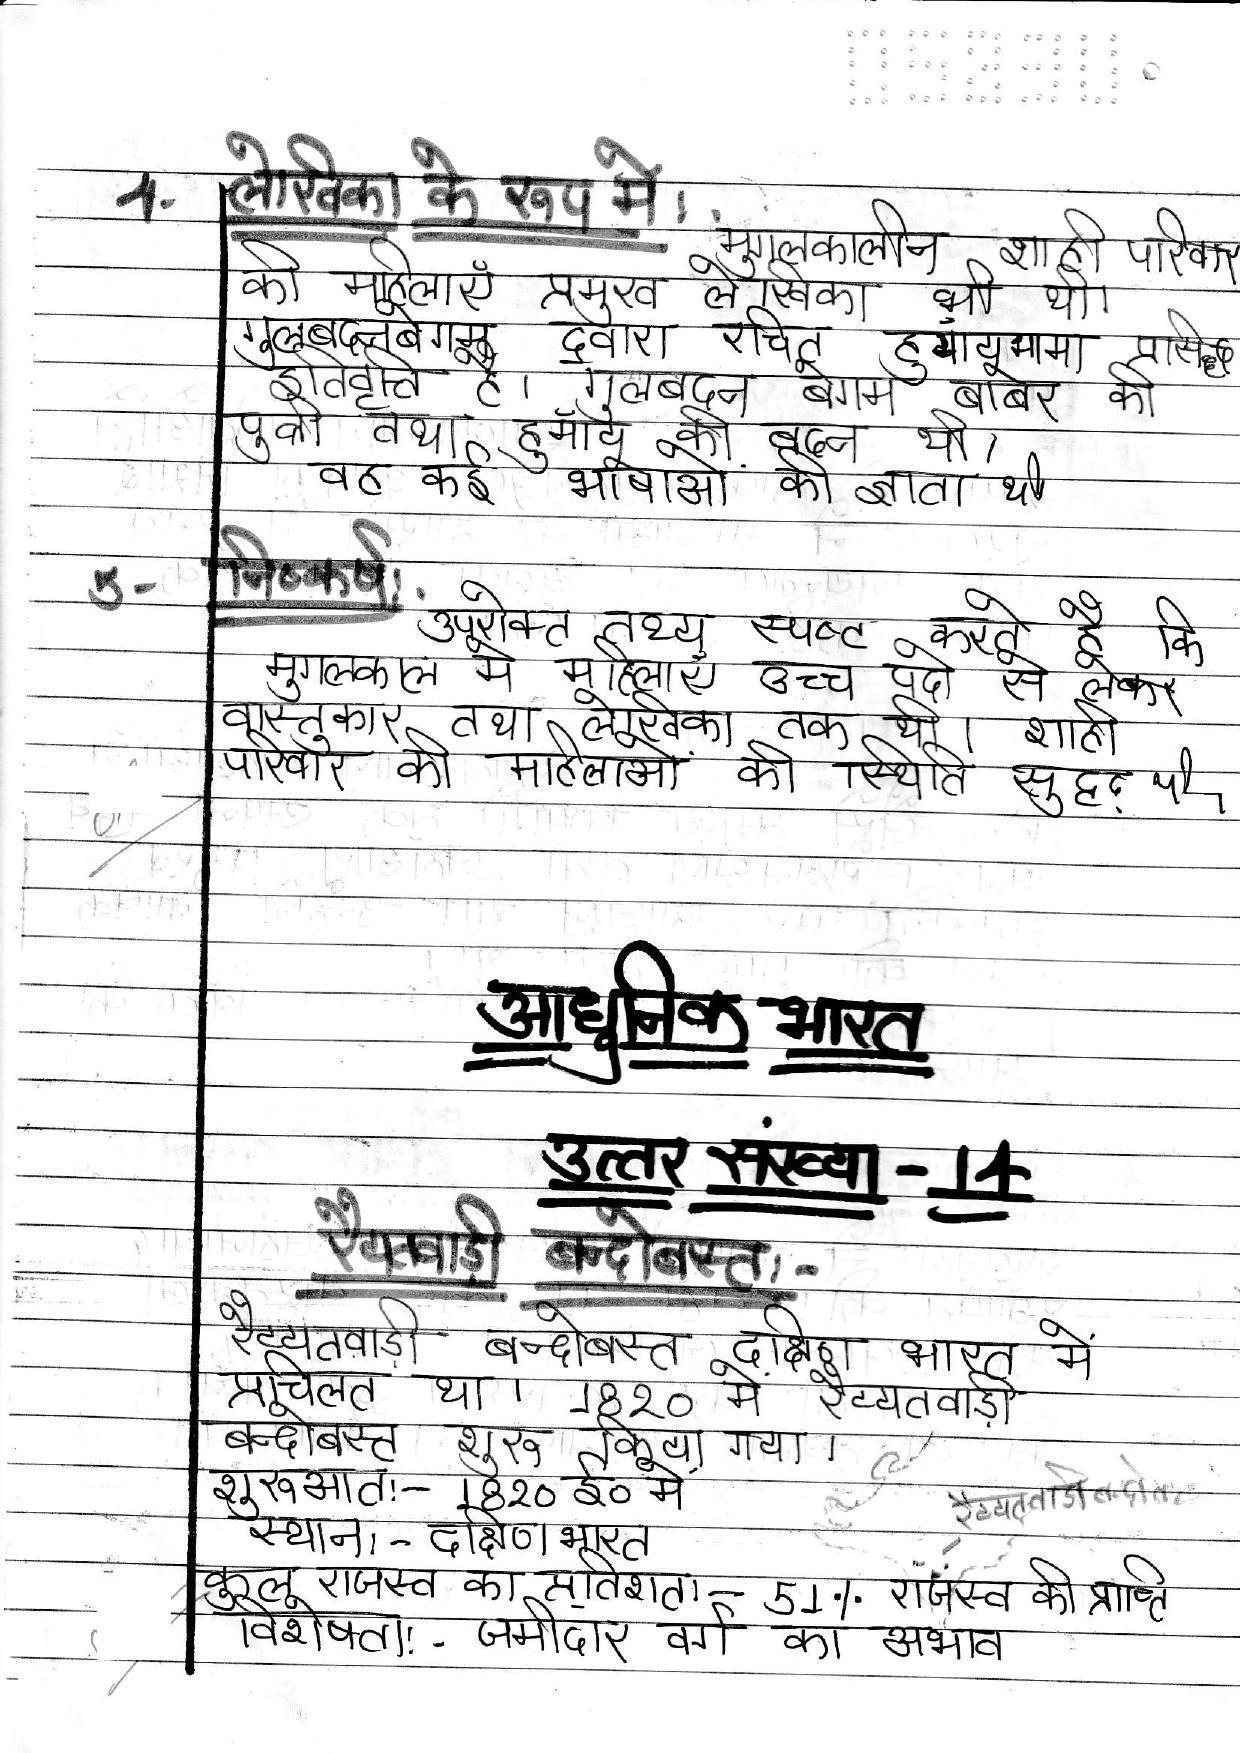 4- लेखिका के रूप में:
मुगलकालीन शाही परिवार
की महिलाएँ प्रमुख लेखिका भी थी।
गुलबदन बेगम द्वारा रचित हुमायूनामा प्रसिद्ध
इतिवृत्ति है। गुलबदन बेगम बाबर की
पुत्री तथा हुमाँयू की बहन थी।
वह कई भाषाओं की ज्ञाता थी
5- निष्कर्ष:
उपरोक्त तथ्य स्पष्ट करते है कि
मुगलकाल मे महिलाएँ उच्च पदो से लेकर
वास्तुकार तथा लेखिका तक थी। शाही
परिवार की महिलाओं की स्थिति सुदृढ़ थी
आधुनिक भारत
उत्तर संख्या - 14
रैय्यतवाड़ी बन्दोबस्त:-
रैय्यतवाड़ी बन्दोबस्त दक्षिण भारत में
प्रचिलत था। 1820 मे रैय्यतवाड़ी
बन्दोबस्त शुरू किया गया।
शुरूआत:- 1820 ई० मे
स्थान:- दक्षिण भारत
कुल राजस्व का प्रतिशत:- 51% राजस्व की प्राप्ति
विशेषता:- जमीदार वर्ग का अभाव